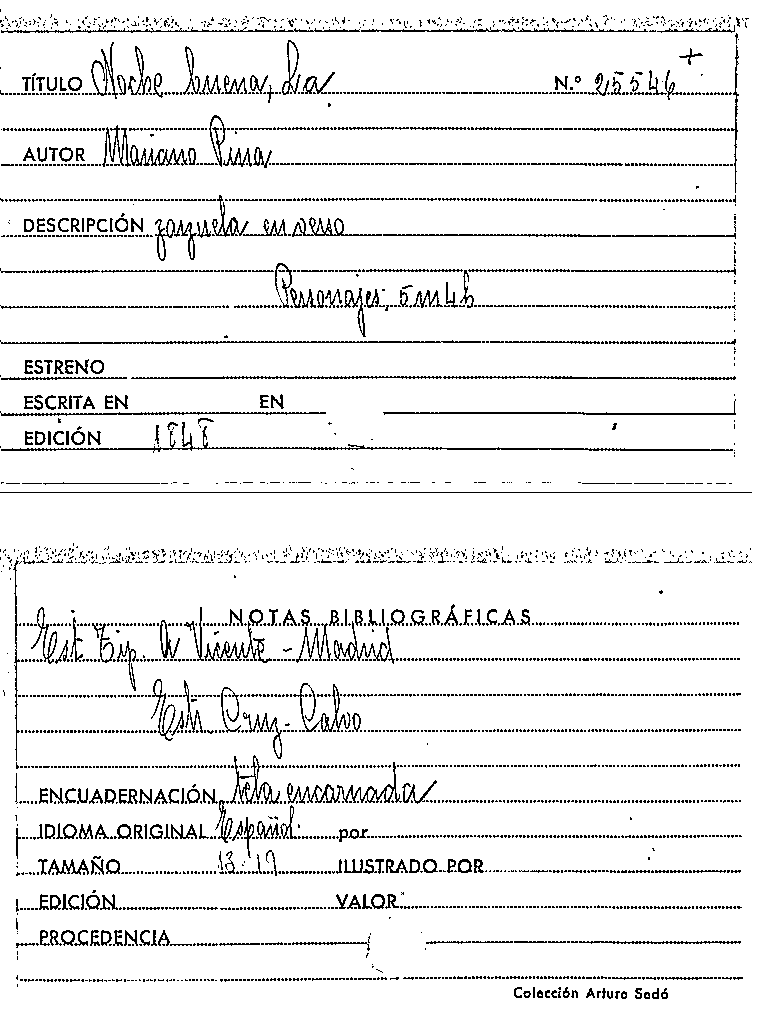 TÍTULO Noche buena, La N.º 25546 +
AUTOR Mariano Pina
DESCRIPCIÓN zarzuela en verso
Personajes, 5 m 4 h
ESTRENO
ESCRITA EN EN
EDICIÓN 1848
NOTAS BIBLIOGRÁFICAS
Est Tip. A Vicente - Madrid
Cruz - Calvo
ENCUADERNACIÓN tela encarnada
IDIOMA ORIGINAL Español. por
TAMAÑO 13-19 ILUSTRADO POR
EDICIÓN VALOR
PROCEDENCIA
Colección Arturo Sedó